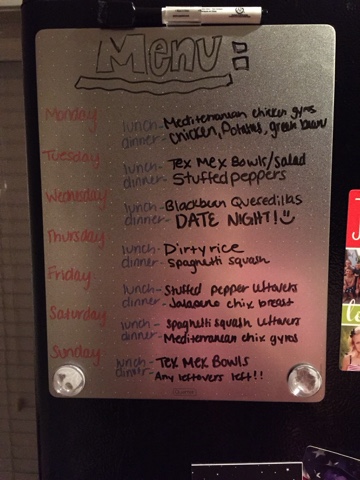 Menu:
Monday
lunch- Mediterranean chicken gyros
dinner- chicken, Potatoes, green beans
Tuesday
lunch- Tex Mex Bowls/salad
dinner- Stuffed peppers
Wednesday
lunch- Blackbean Quesedillas
dinner- DATE NIGHT!
Thursday
lunch- Dirty rice
dinner- spaghetti squash
Friday
lunch- Stuffed pepper leftovers
dinner- Jalapeno chix breast
Saturday
lunch- spaghetti squash leftovers
dinner- Mediterranean chix gyros
Sunday
lunch- Tex Mex Bowls
dinner- Any leftovers left!!